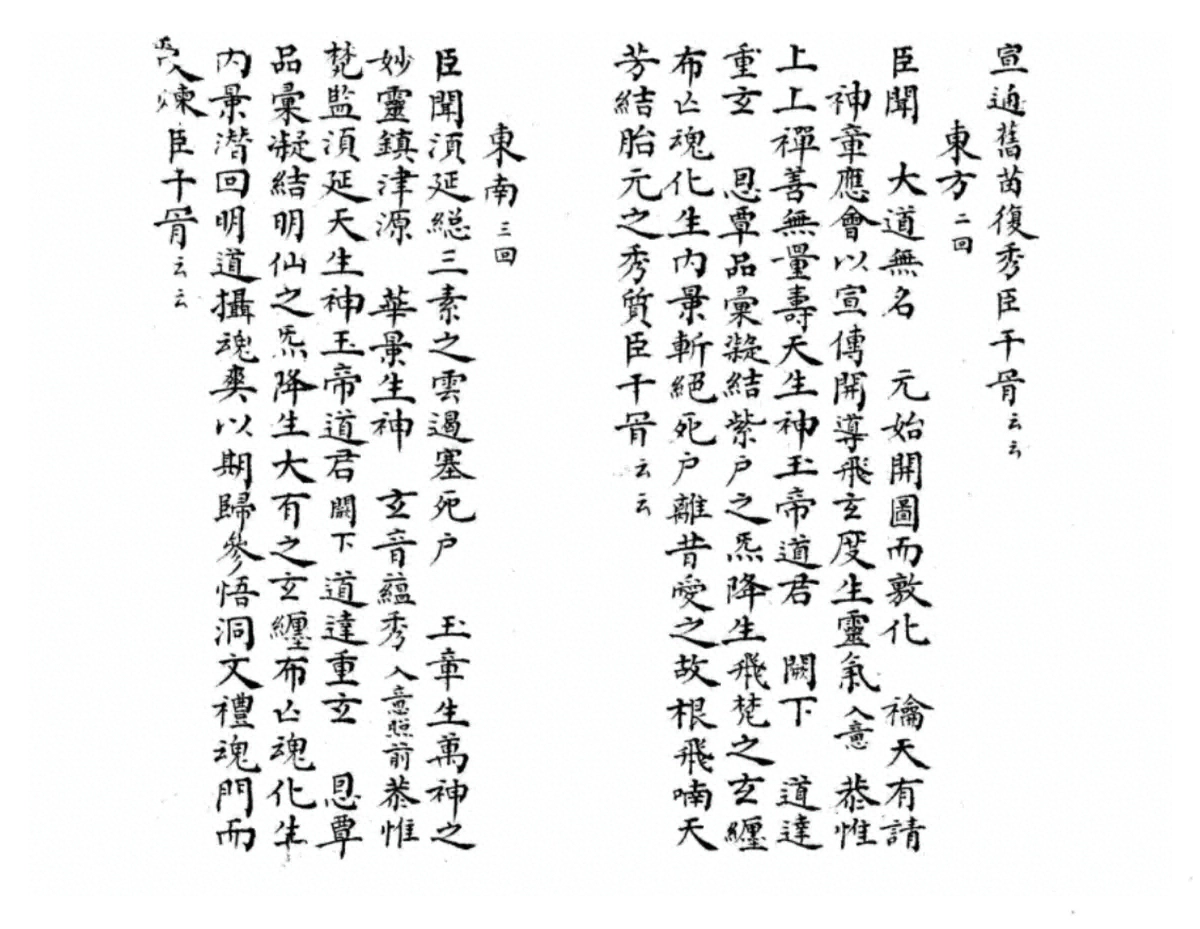 宣逈舊苗復秀臣干冐云云
東方二回
臣聞　大道無名　元始開圖而敷化　禴天有請
神章應會以宣傳開導飛玄度生靈氣入意　恭惟
上上禪善無量壽天生神玉帝道君　闕下　道達
重玄　恩覃品彙凝結紫户之炁降生飛梵之玄纒
布亾魂化生内景斬絕死户離昔愛之故根飛喃天
芳結胎元之秀質臣干冐云云
東南三回
臣聞湏延総三素之雲遏塞死户　玉章生萬神之
妙靈鎮津源　華景生神　玄音蘊秀入意照前恭惟
梵監湏延天生神玉帝道君闕下道達重玄　恩覃
品彙凝結明仙之炁降生大有之玄纒布亾魂化生
内景潛回明道攝魂爽以期歸參悟洞文禮魂門而
受煉臣干冐云云